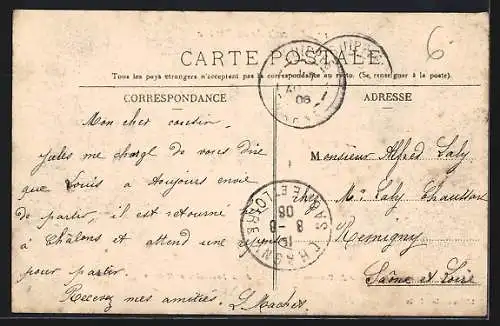 CARTE POSTALE
Tous les pays étrangers n'acceptent pas la correspondance au recto. (Se renseigner à la poste).
CORRESPONDANCE
ADRESSE
6
Mon cher cousin.
Jules me charge de vous dire
que Louis a toujours envie
de partir, il est retourné
à Châlons et attend une
pour partir.
Recevez mes amitiés.
Monsieur Alfred Laly
chez Mr Laly Chausson
Remigny
Saône et Loire
06
8-8
08